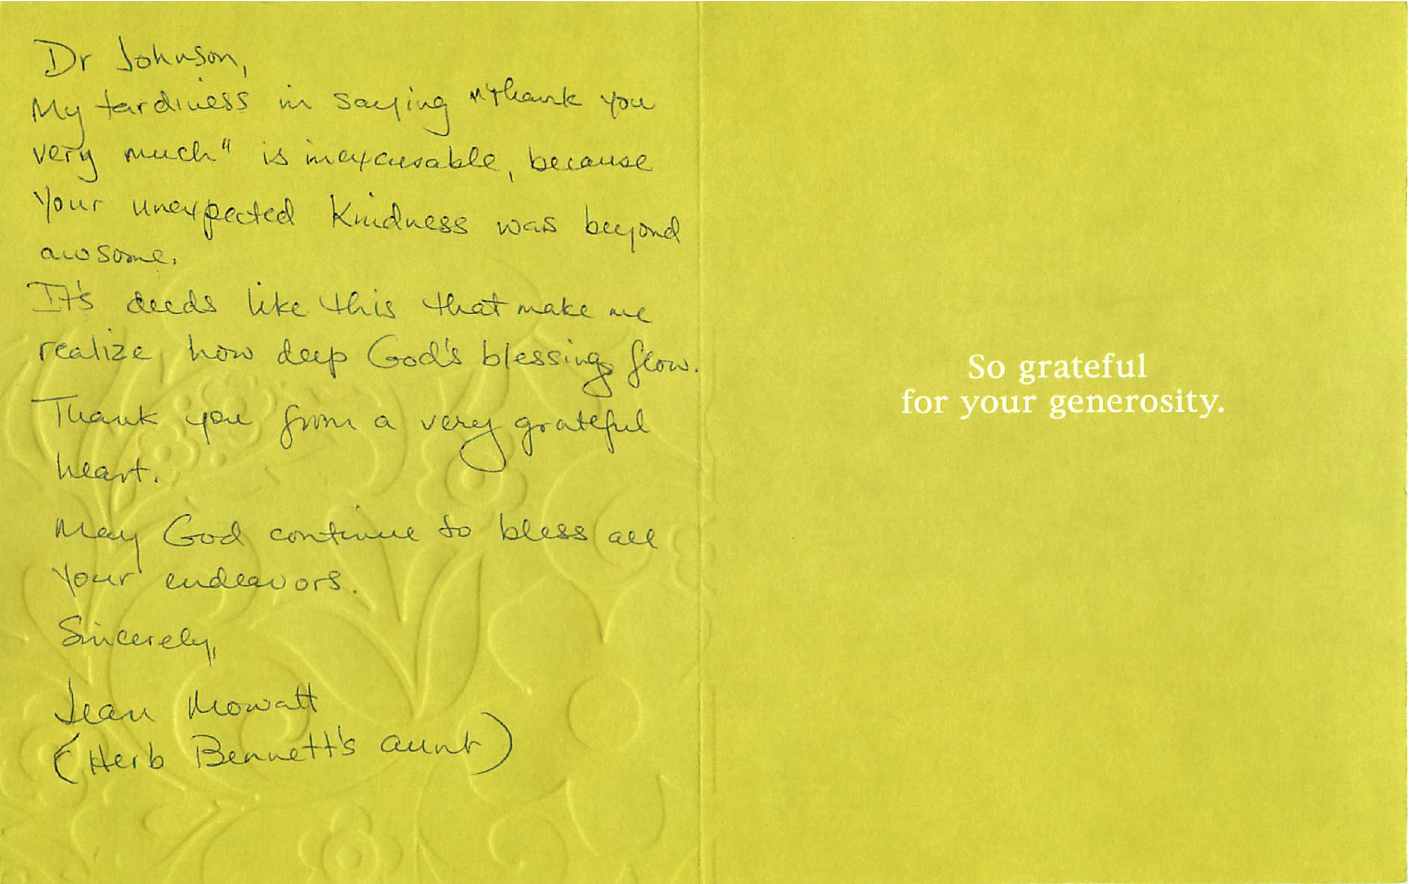 Dr Johnson,
My tardiness in saying "thank you
very much" is inexcusable, because
your unexpected kindness was beyond
awsome.
It's deeds like this that make me
realize how deep God's blessings flow.
Thank you from a very grateful
heart.
May God continue to bless all
your endeavors.
Sincerely,
Jean Mowatt
(Herb Bennett's aunt)
So grateful
for your generosity.